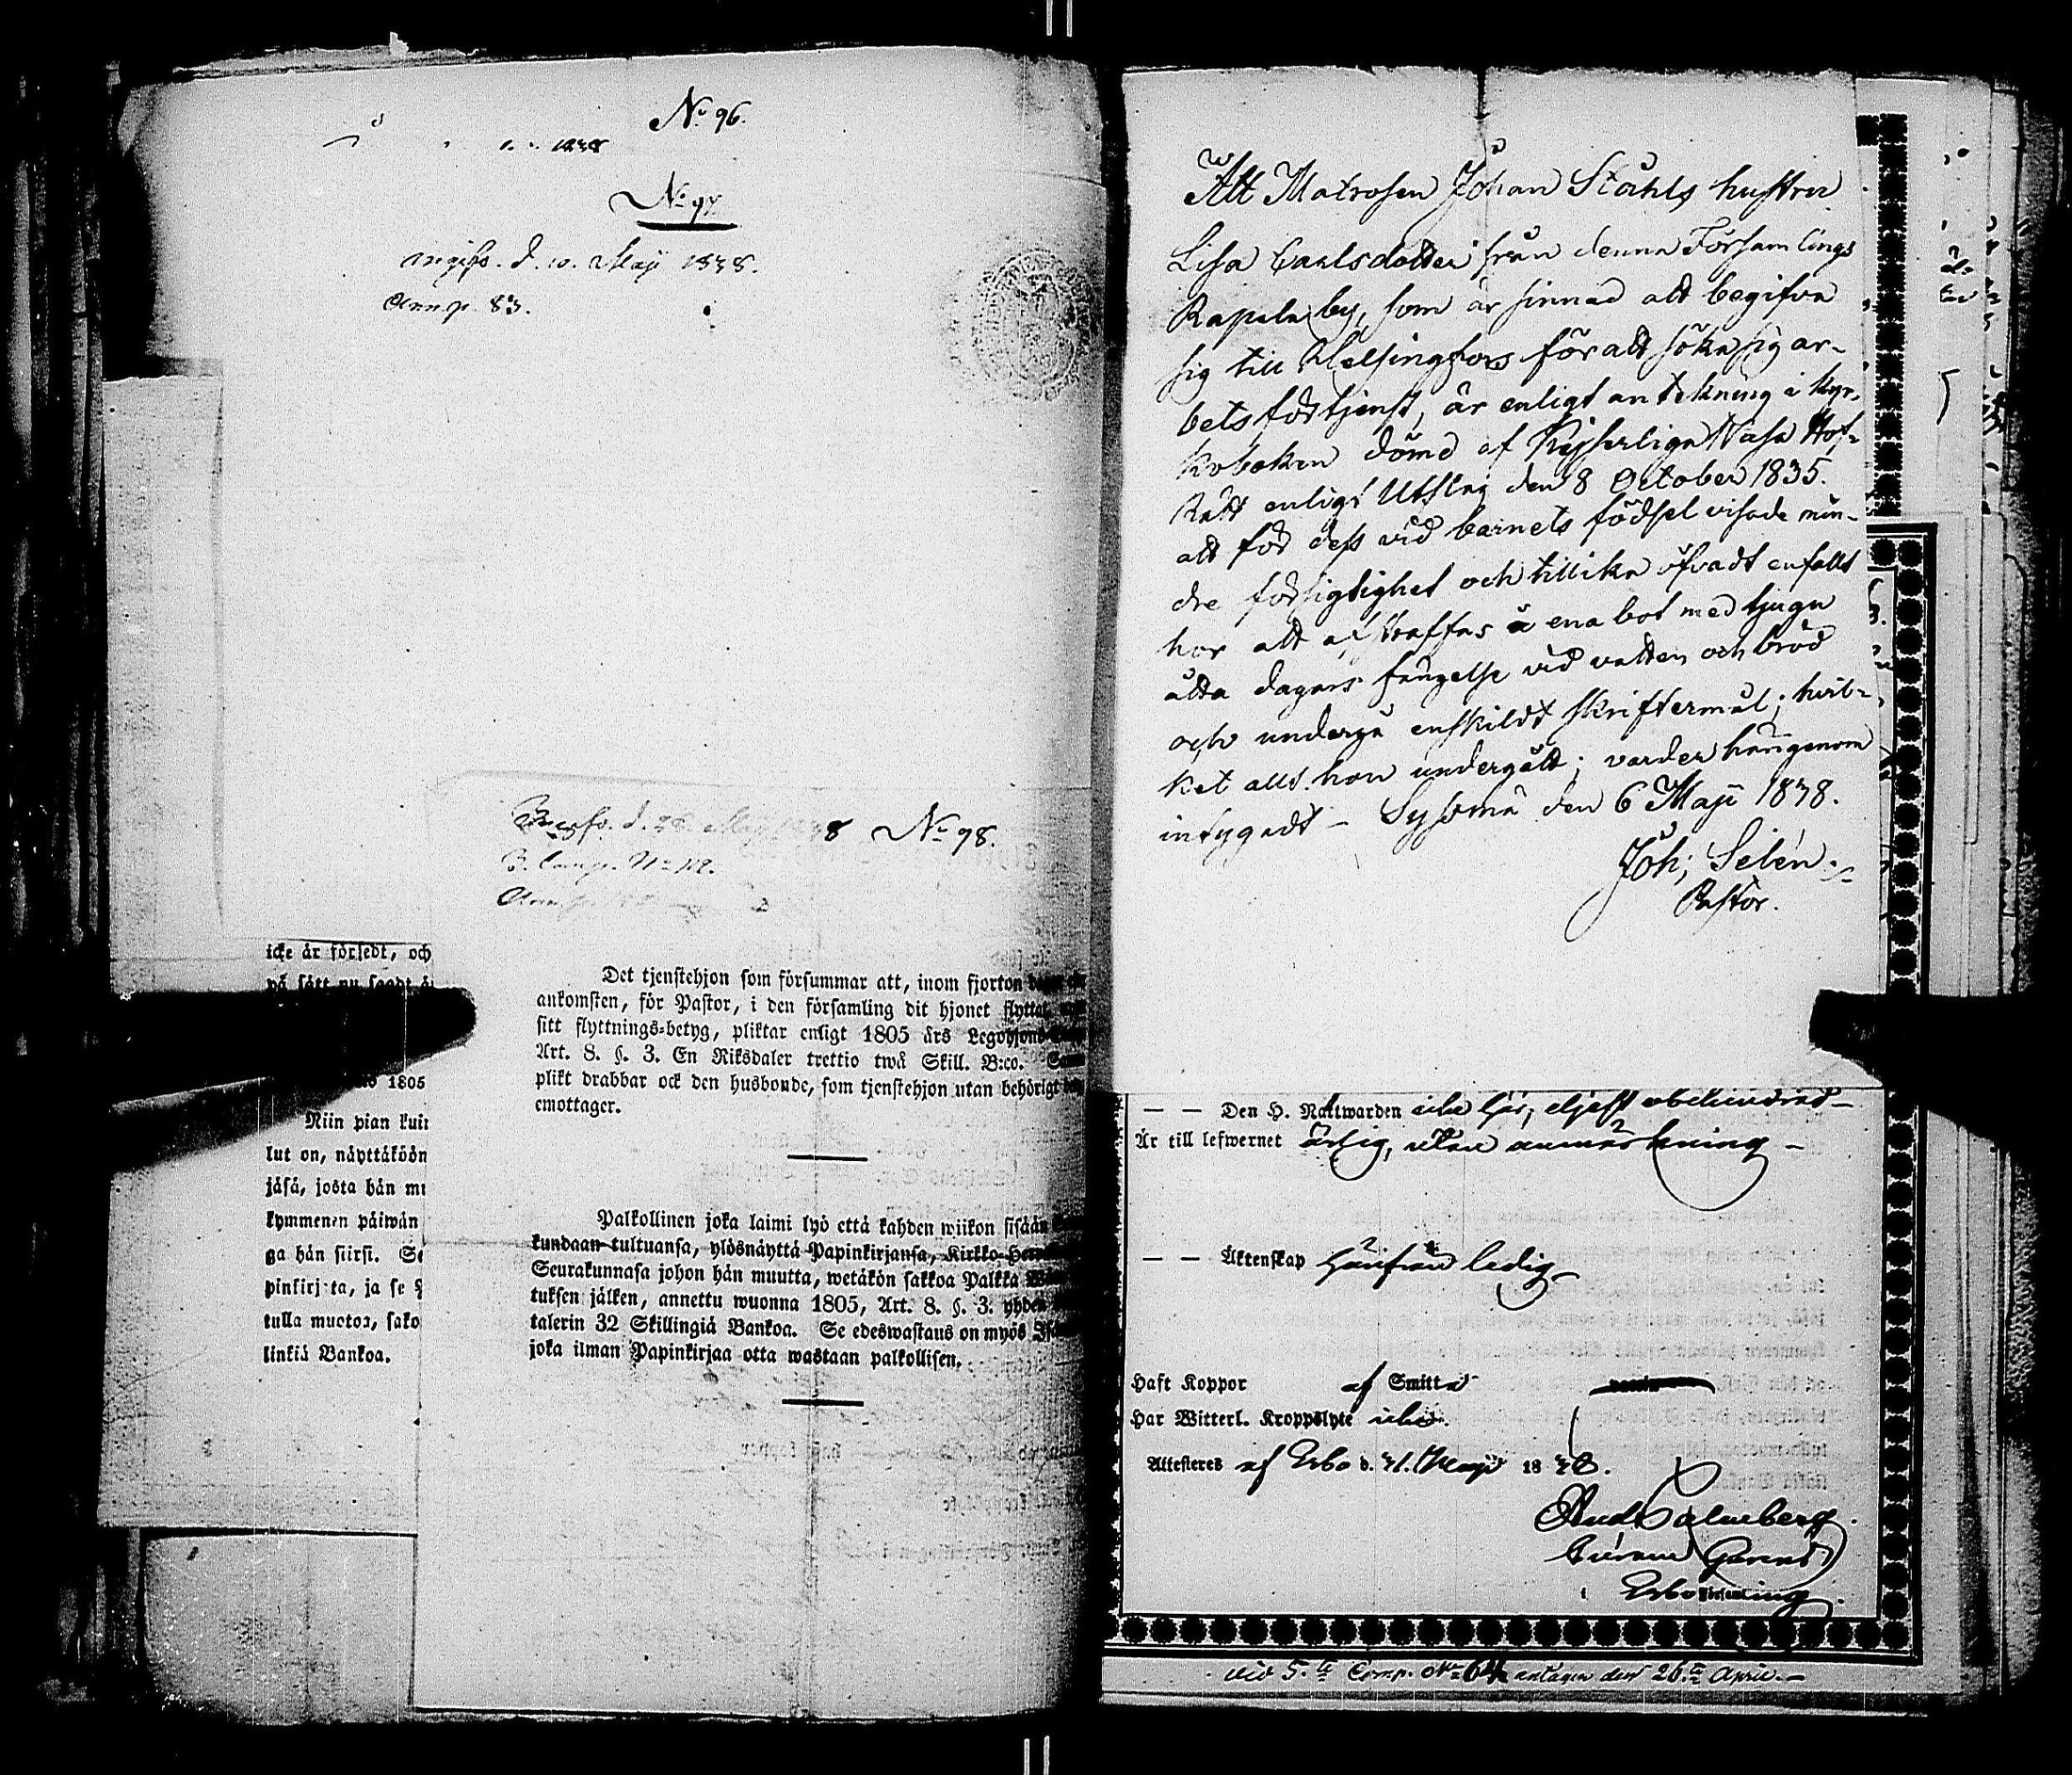 No 96.
1838
No 97.
ingifs. d. 10. Maji 1838.
Ann. p. 83.
d. 28. May 1838 No 98.
B. Comp. No
icke är försedt, och
på sätt nu sagdt är
1805
Niin pian kuin
lut on, näyttäköön
jäsä, josta hän mu
kymmenen päiwän
ga hän siirsi. Se
pinkirjata, ja se
tulla muotoa, sako
linkiä Bankoa.
Det tjenstehjon som försummar att, inom fjorton
ankomsten, för Pastor, i den församling dit hjonet flyttat,
sitt flyttnings-betyg, pliktar enligt 1805 års Legohjons
Art. 8. §. 3. En Riksdaler trettio twå Skill. B:co. Sam
plikt drabbar ock den husbonde, som tjenstehjon utan behörigt
emottager.
Palkollinen joka laimi lyö että kahden wiikon sisään
kundaan tultuansa, ylösnäyttä Papinkirjansa, Kirkko-Her
Seurakunnasa johon hän muutta, wetäkön sakkoa Palkka
tuksen jälken, annettu wuonna 1805, Art. 8. §. 3. yhden
talerin 32 Skillingiä Bankoa. Se edeswastaus on myös
joka ilman Papinkirjaa otta wastaan palkollisen.
Att Matrosen Johan Ståhls hustru
Lisa Carlsdotter från denna Församlings
Rapala by, som är sinnad att begifva
sig till Helsingfors för att söka sig ar-
betsförtjenst, är enligt antekning i kyr-
koboken dömd af Kejserliga Wasa Hof-
Rätt enligt Utslag den 8 October 1835.
att för dess vid barnets födsel visade min-
dre försigtighet och tillika öfvadt enfallt
hor att afstraffas å ena bot med tjugu
åtta dagars fängelse vid vatten och bröd
och undergå enskildt skriftermål; hvil-
ket allt hon undergått; varder härigenom
intygadt – Sysmä den 6 Maji 1838.
Joh; Selén.
Pastor.
— — Den H. Nattwarden icke här, eljest obehindrad –
Är till lefwernet ärlig, utan anmärkning –
— — Äktenskap härifrån ledig –
Haft Koppor af Smitta
Har Witterl. Kroppslyte icke.
Attesteres af Esbo d. 21. Maji 1838.
And Salmberg.
Esbo Församling.
vid 5.te Comp. No 64 antagen den 26.te April. –